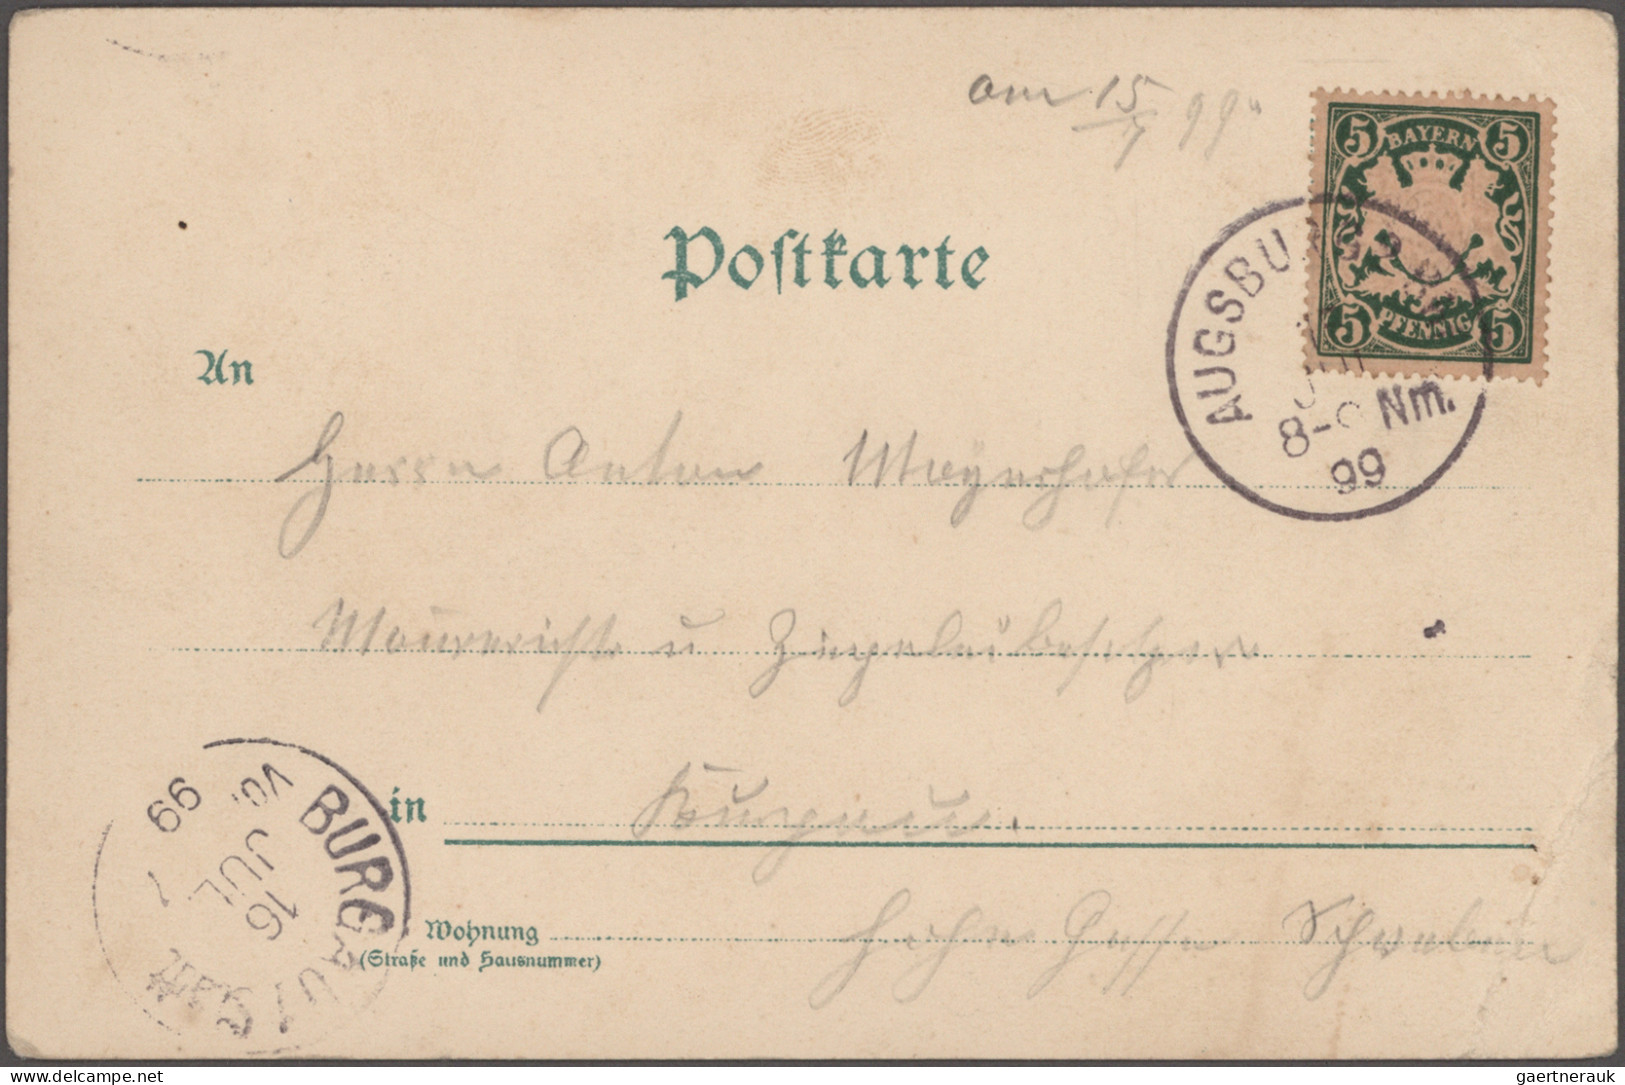 am 15/7 99
BAYERN
5 5
5 5
PFENNIG
Poſtkarte
AUGSBURG
JUL
8-9 Nm.
99
An
Herrn Anton Mayerhofer
Maurermſtr u Ziegeleibeſitzer
in Burgau.
Wohnung Hohe Gaſſe Schwaben
(Straße und Hausnummer)
BURGAU
Vor.
16
JUL
99
7
delcampe.net
gaertnerauk